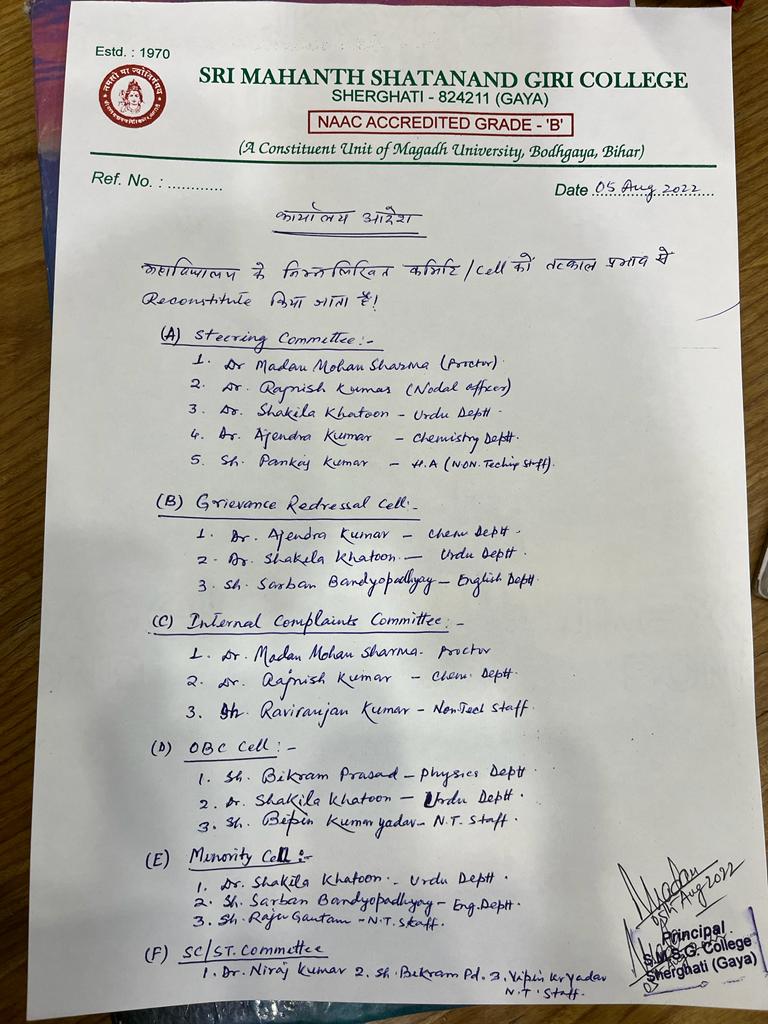 Estd. : 1970
SRI MAHANTH SHATANAND GIRI COLLEGE
SHERGHATI - 824211 (GAYA)
NAAC ACCREDITED GRADE - 'B'
(A Constituent Unit of Magadh University, Bodhgaya, Bihar)
Ref. No. : ............
Date 05 Aug 2022
कार्यालय आदेश
महाविद्यालय के निम्नलिखित कमिटि/Cell को तत्काल प्रभाव से
Reconstitute किया जाता है!
(A) Steering Committee :-
1. Dr Madan Mohan Sharma (Proctor)
2. Dr. Rajnish Kumar (Nodal officer)
3. Dr. Shakila Khatoon - Urdu Deptt.
4. Dr. Ajendra Kumar - Chemistry Deptt.
5. Sh. Pankaj Kumar - H.A (NON. Teching Staff).
(B) Grievance Redressal Cell:-
1. Dr. Ajendra Kumar - Chem Deptt.
2. Dr. Shakila Khatoon - Urdu Deptt.
3. Sh. Sarban Bandyopadhyay - English Deptt.
(C) Internal Complaints Committee: -
1. Dr. Madan Mohan Sharma - Proctor
2. Dr. Rajnish Kumar - Chem. Deptt.
3. Sh. Raviranjan Kumar - Non-Tech Staff.
(D) OBC Cell : -
1. Sh. Bikram Prasad - Physics Deptt.
2. Dr. Shakila Khatoon - Urdu Deptt.
3. Sh. Bipin Kumar Yadav - N.T. Staff.
(E) Minority Cell :-
1. Dr. Shakila Khatoon - Urdu Deptt.
2. Sh. Sarban Bandyopadhyay - Eng. Deptt.
3. Sh. Raju Gautam - N.T. Staff.
(F) SC/ST. Committee
1. Dr. Niraj Kumar 2. Sh. Bikram Pd. 3. Vipin Kr Yadav
N.T. Staff.
05th Aug 2022
Principal
S.M.S.G. College
Sherghati (Gaya)